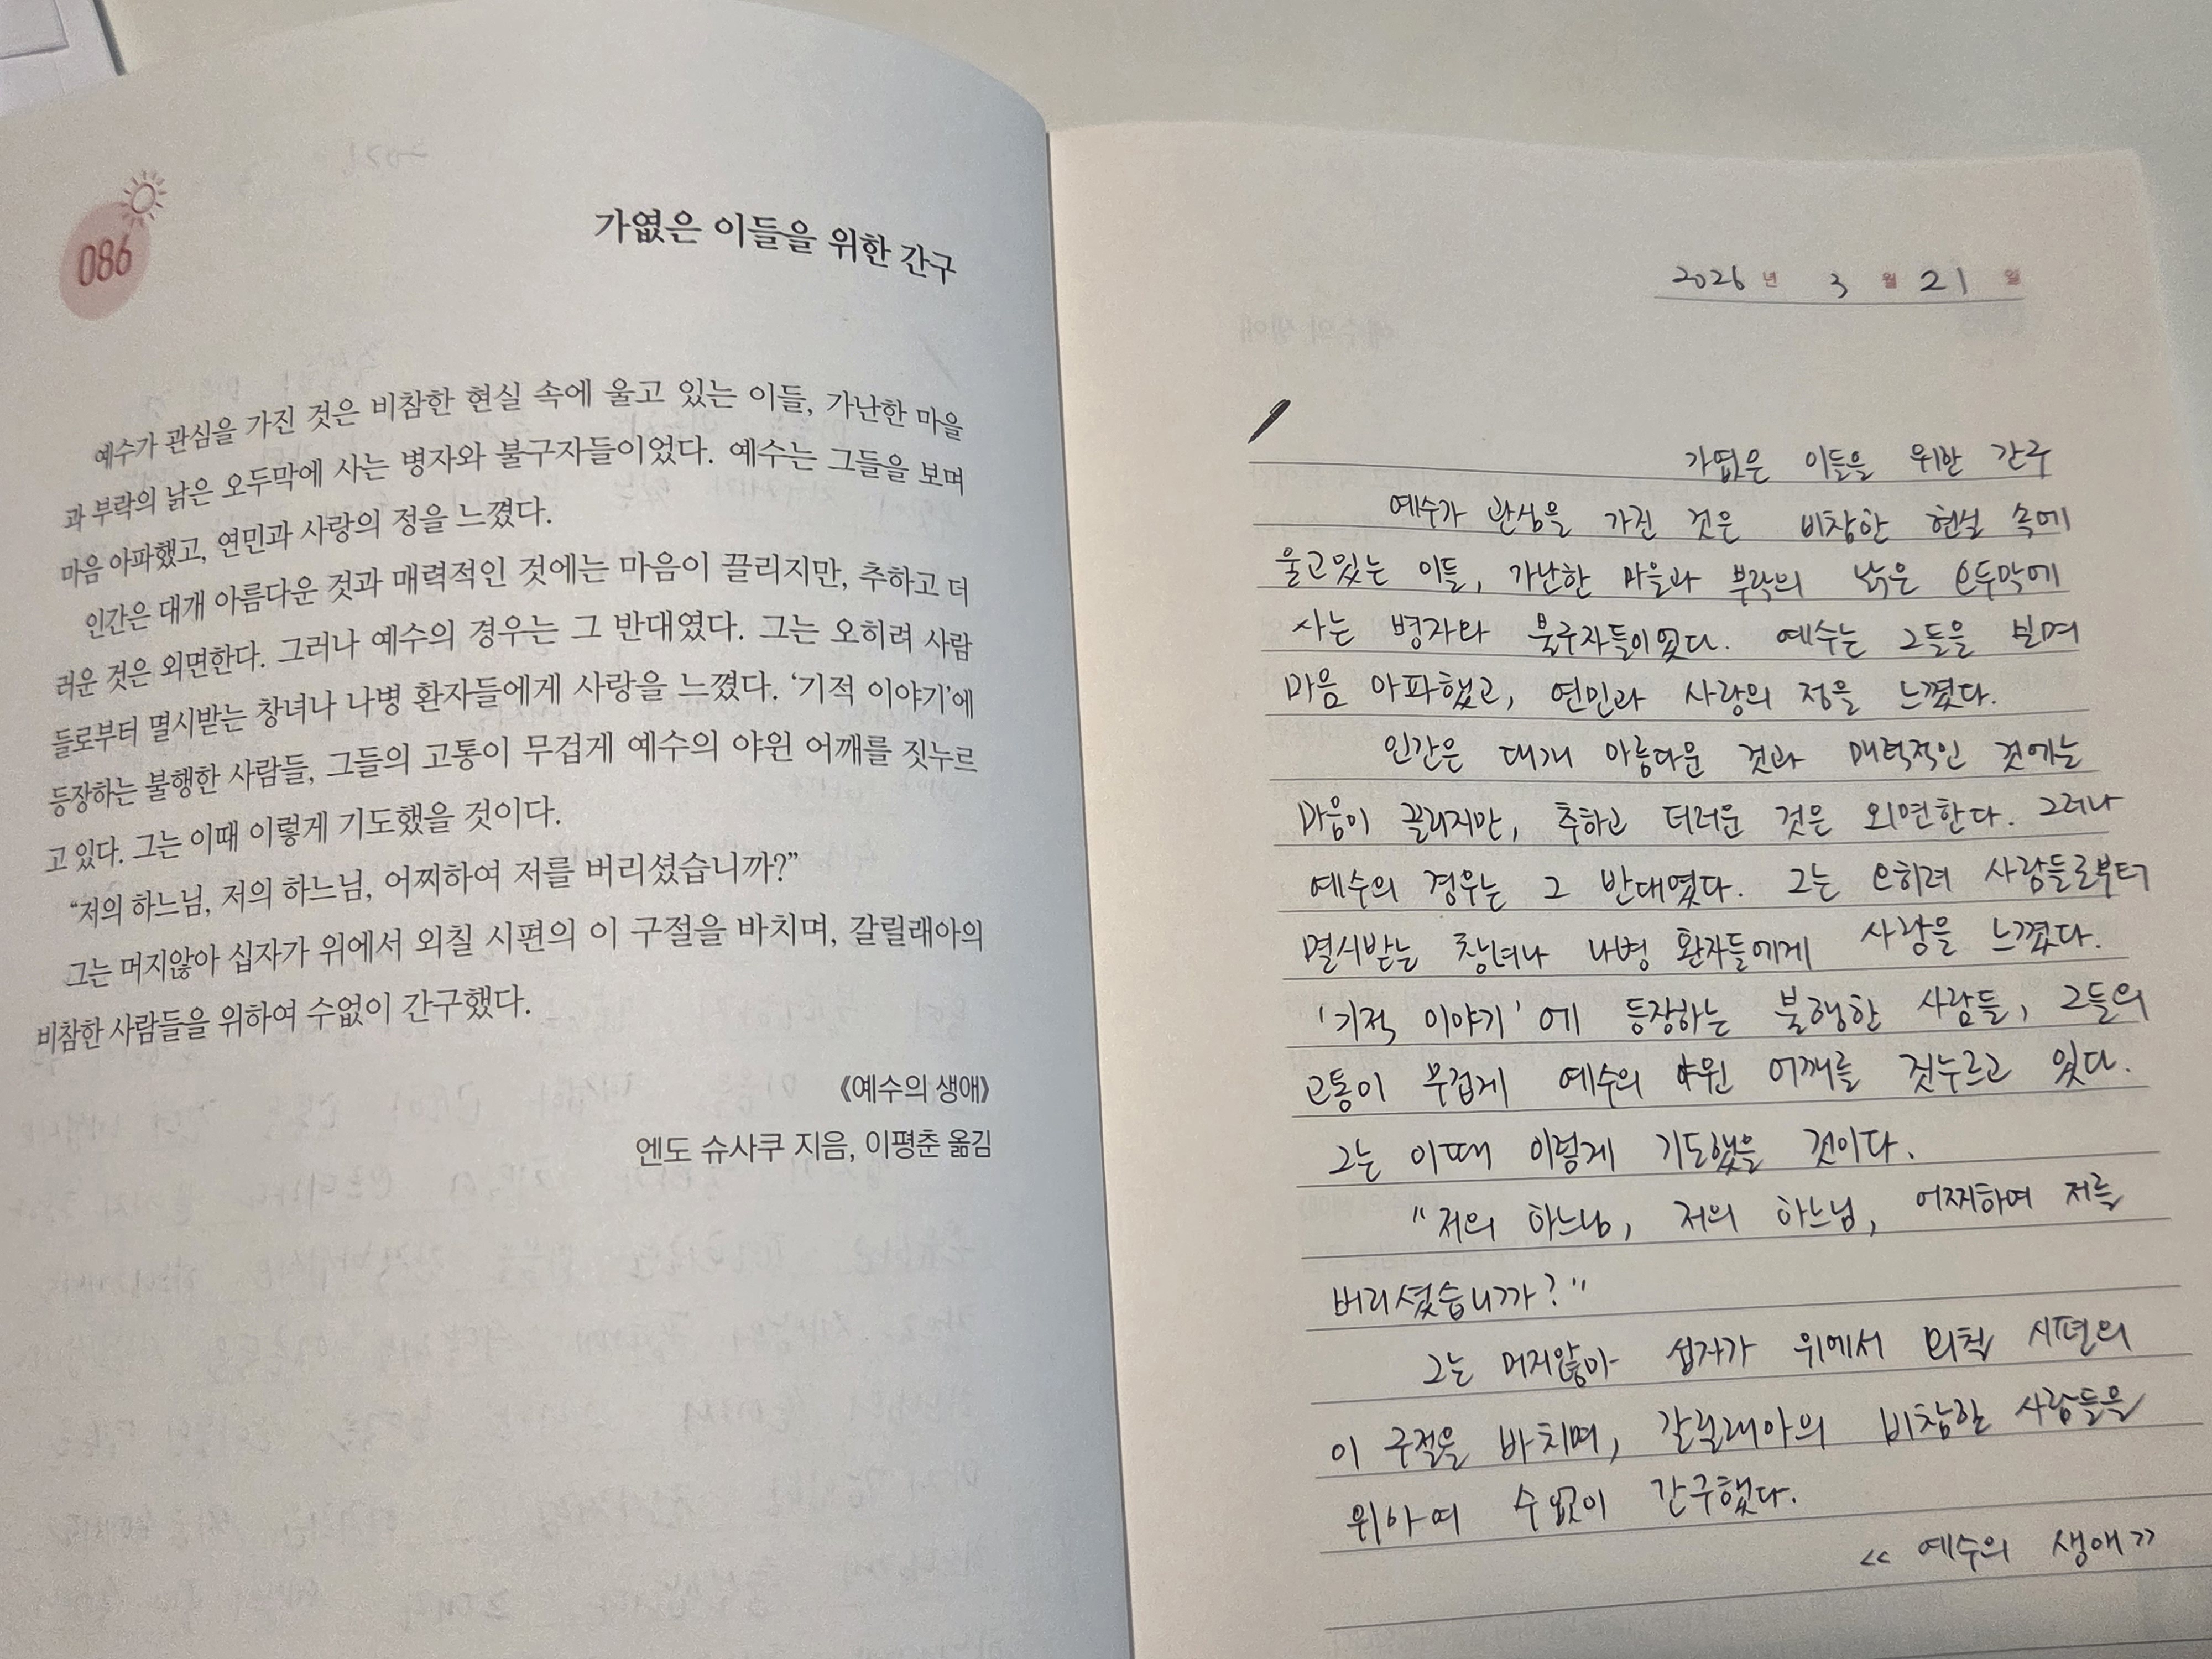 086
가엾은 이들을 위한 간구
예수가 관심을 가진 것은 비참한 현실 속에 울고 있는 이들, 가난한 마을
과 부락의 낡은 오두막에 사는 병자와 불구자들이었다. 예수는 그들을 보며
마음 아파했고, 연민과 사랑의 정을 느꼈다.
인간은 대개 아름다운 것과 매력적인 것에는 마음이 끌리지만, 추하고 더
러운 것은 외면한다. 그러나 예수의 경우는 그 반대였다. 그는 오히려 사람
들로부터 멸시받는 창녀나 나병 환자들에게 사랑을 느꼈다. ‘기적 이야기’에
등장하는 불행한 사람들, 그들의 고통이 무겁게 예수의 야윈 어깨를 짓누르
고 있다. 그는 이때 이렇게 기도했을 것이다.
“저의 하느님, 저의 하느님, 어찌하여 저를 버리셨습니까?”
그는 머지않아 십자가 위에서 외칠 시편의 이 구절을 바치며, 갈릴래아의
비참한 사람들을 위하여 수없이 간구했다.
《예수의 생애》
엔도 슈사쿠 지음, 이평춘 옮김
2026년 3월 21일
가엾은 이들을 위한 간구
예수가 관심을 가진 것은 비참한 현실 속에
울고있는 이들, 가난한 마을과 부락의 낡은 오두막에
사는 병자와 불구자들이었다. 예수는 그들을 보며
마음 아파했고, 연민과 사랑의 정을 느꼈다.
인간은 대개 아름다운 것과 매력적인 것에는
마음이 끌리지만, 추하고 더러운 것은 외면한다. 그러나
예수의 경우는 그 반대였다. 그는 오히려 사람들로부터
멸시받는 창녀나 나병 환자들에게 사랑을 느꼈다.
‘기적 이야기’에 등장하는 불행한 사람들, 그들의
고통이 무겁게 예수의 야윈 어깨를 짓누르고 있다.
그는 이때 이렇게 기도했을 것이다.
“저의 하느님, 저의 하느님, 어찌하여 저를
버리셨습니까?”
그는 머지않아 십자가 위에서 외칠 시편의
이 구절을 바치며, 갈릴래아의 비참한 사람들을
위하여 수없이 간구했다.
<< 예수의 생애>>